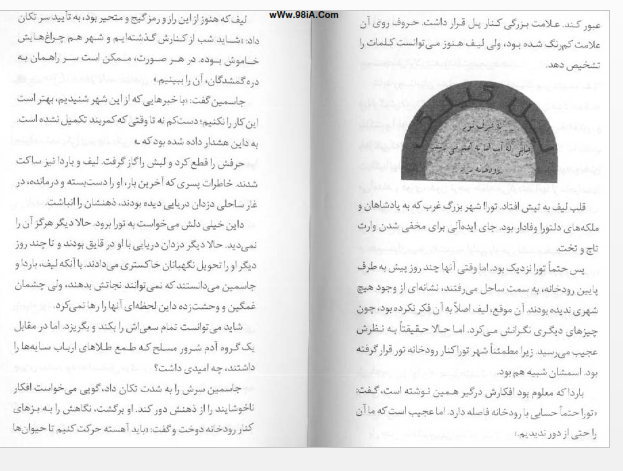 wWw.98iA.Com
عبور کند. علامت بزرگی کنار پل قرار داشت. حروف روی آن
علامت کم‌رنگ شده بود، ولی لیف هنوز می‌توانست کلمات را
تشخیص دهد.
قلب لیف به تپش افتاد. تورا! شهر بزرگ غرب که به پادشاهان و
ملکه‌های دلتورا وفادار بود. جای ایده‌آلی برای مخفی شدن وارث
تاج و تخت.
پس حتماً تورا نزدیک بود. اما وقتی آنها چند روز پیش به طرف
پایین رودخانه، به سمت ساحل می‌رفتند، نشانه‌ای از وجود هیچ
شهری ندیده بودند. آن موقع، لیف اصلاً به آن فکر نکرده بود، چون
چیزهای دیگری نگرانش می‌کرد. اما حالا حقیقتاً به نظرش
عجیب می‌رسید. زیرا مطمئناً شهر تورا کنار رودخانه تور قرار گرفته
بود. اسمشان شبیه هم بود.
باردا که معلوم بود افکارش درگیر همین نوشته است، گفت:
«تورا حتماً حسابی با رودخانه فاصله دارد. اما عجیب است که ما آن
را حتی از دور ندیدیم.»
لیف که هنوز از این راز و رمز گیج و متحیر بود، به تأیید سر تکان
داد: «شاید شب از کنارش گذشته‌ایم و شهر هم چراغ‌هایش
خاموش بوده. در هر صورت، ممکن است سر راهمان به
دره گمشدگان، آن را ببینیم.»
جاسمین گفت: «با خبرهایی که از این شهر شنیدیم، بهتر است
این کار را نکنیم؛ دست‌کم نه تا وقتی که کمربند تکمیل نشده است.
به داین هشدار داده شده بود که...»
حرفش را قطع کرد و لبش را گاز گرفت. لیف و باردا نیز ساکت
شدند. خاطرات پسری که آخرین بار، او را دست‌بسته و درمانده، در
غار ساحلی دزدان دریایی دیده بودند، ذهنشان را انباشت.
داین خیلی دلش می‌خواست به تورا برود. حالا دیگر هرگز آن را
نمی‌دید. حالا دیگر دزدان دریایی با او در قایق بودند و تا چند روز
دیگر او را تحویل نگهبانان خاکستری می‌دادند. با آنکه لیف، باردا و
جاسمین می‌دانستند که نمی‌توانند نجاتش بدهند، ولی چشمان
غمگین و وحشت‌زده داین لحظه‌ای آنها را رها نمی‌کرد.
شاید می‌توانست تمام سعی‌اش را بکند و بگریزد. اما در مقابل
یک گروه آدم شرور مسلح که طمع طلاهای ارباب سایه‌ها را
داشتند، چه امیدی داشت؟
جاسمین سرش را به شدت تکان داد، گویی می‌خواست افکار
ناخوشایند را از ذهنش دور کند. او برگشت، نگاهش را به بزهای
کنار رودخانه دوخت و گفت: «باید آهسته حرکت کنیم تا حیوان‌ها